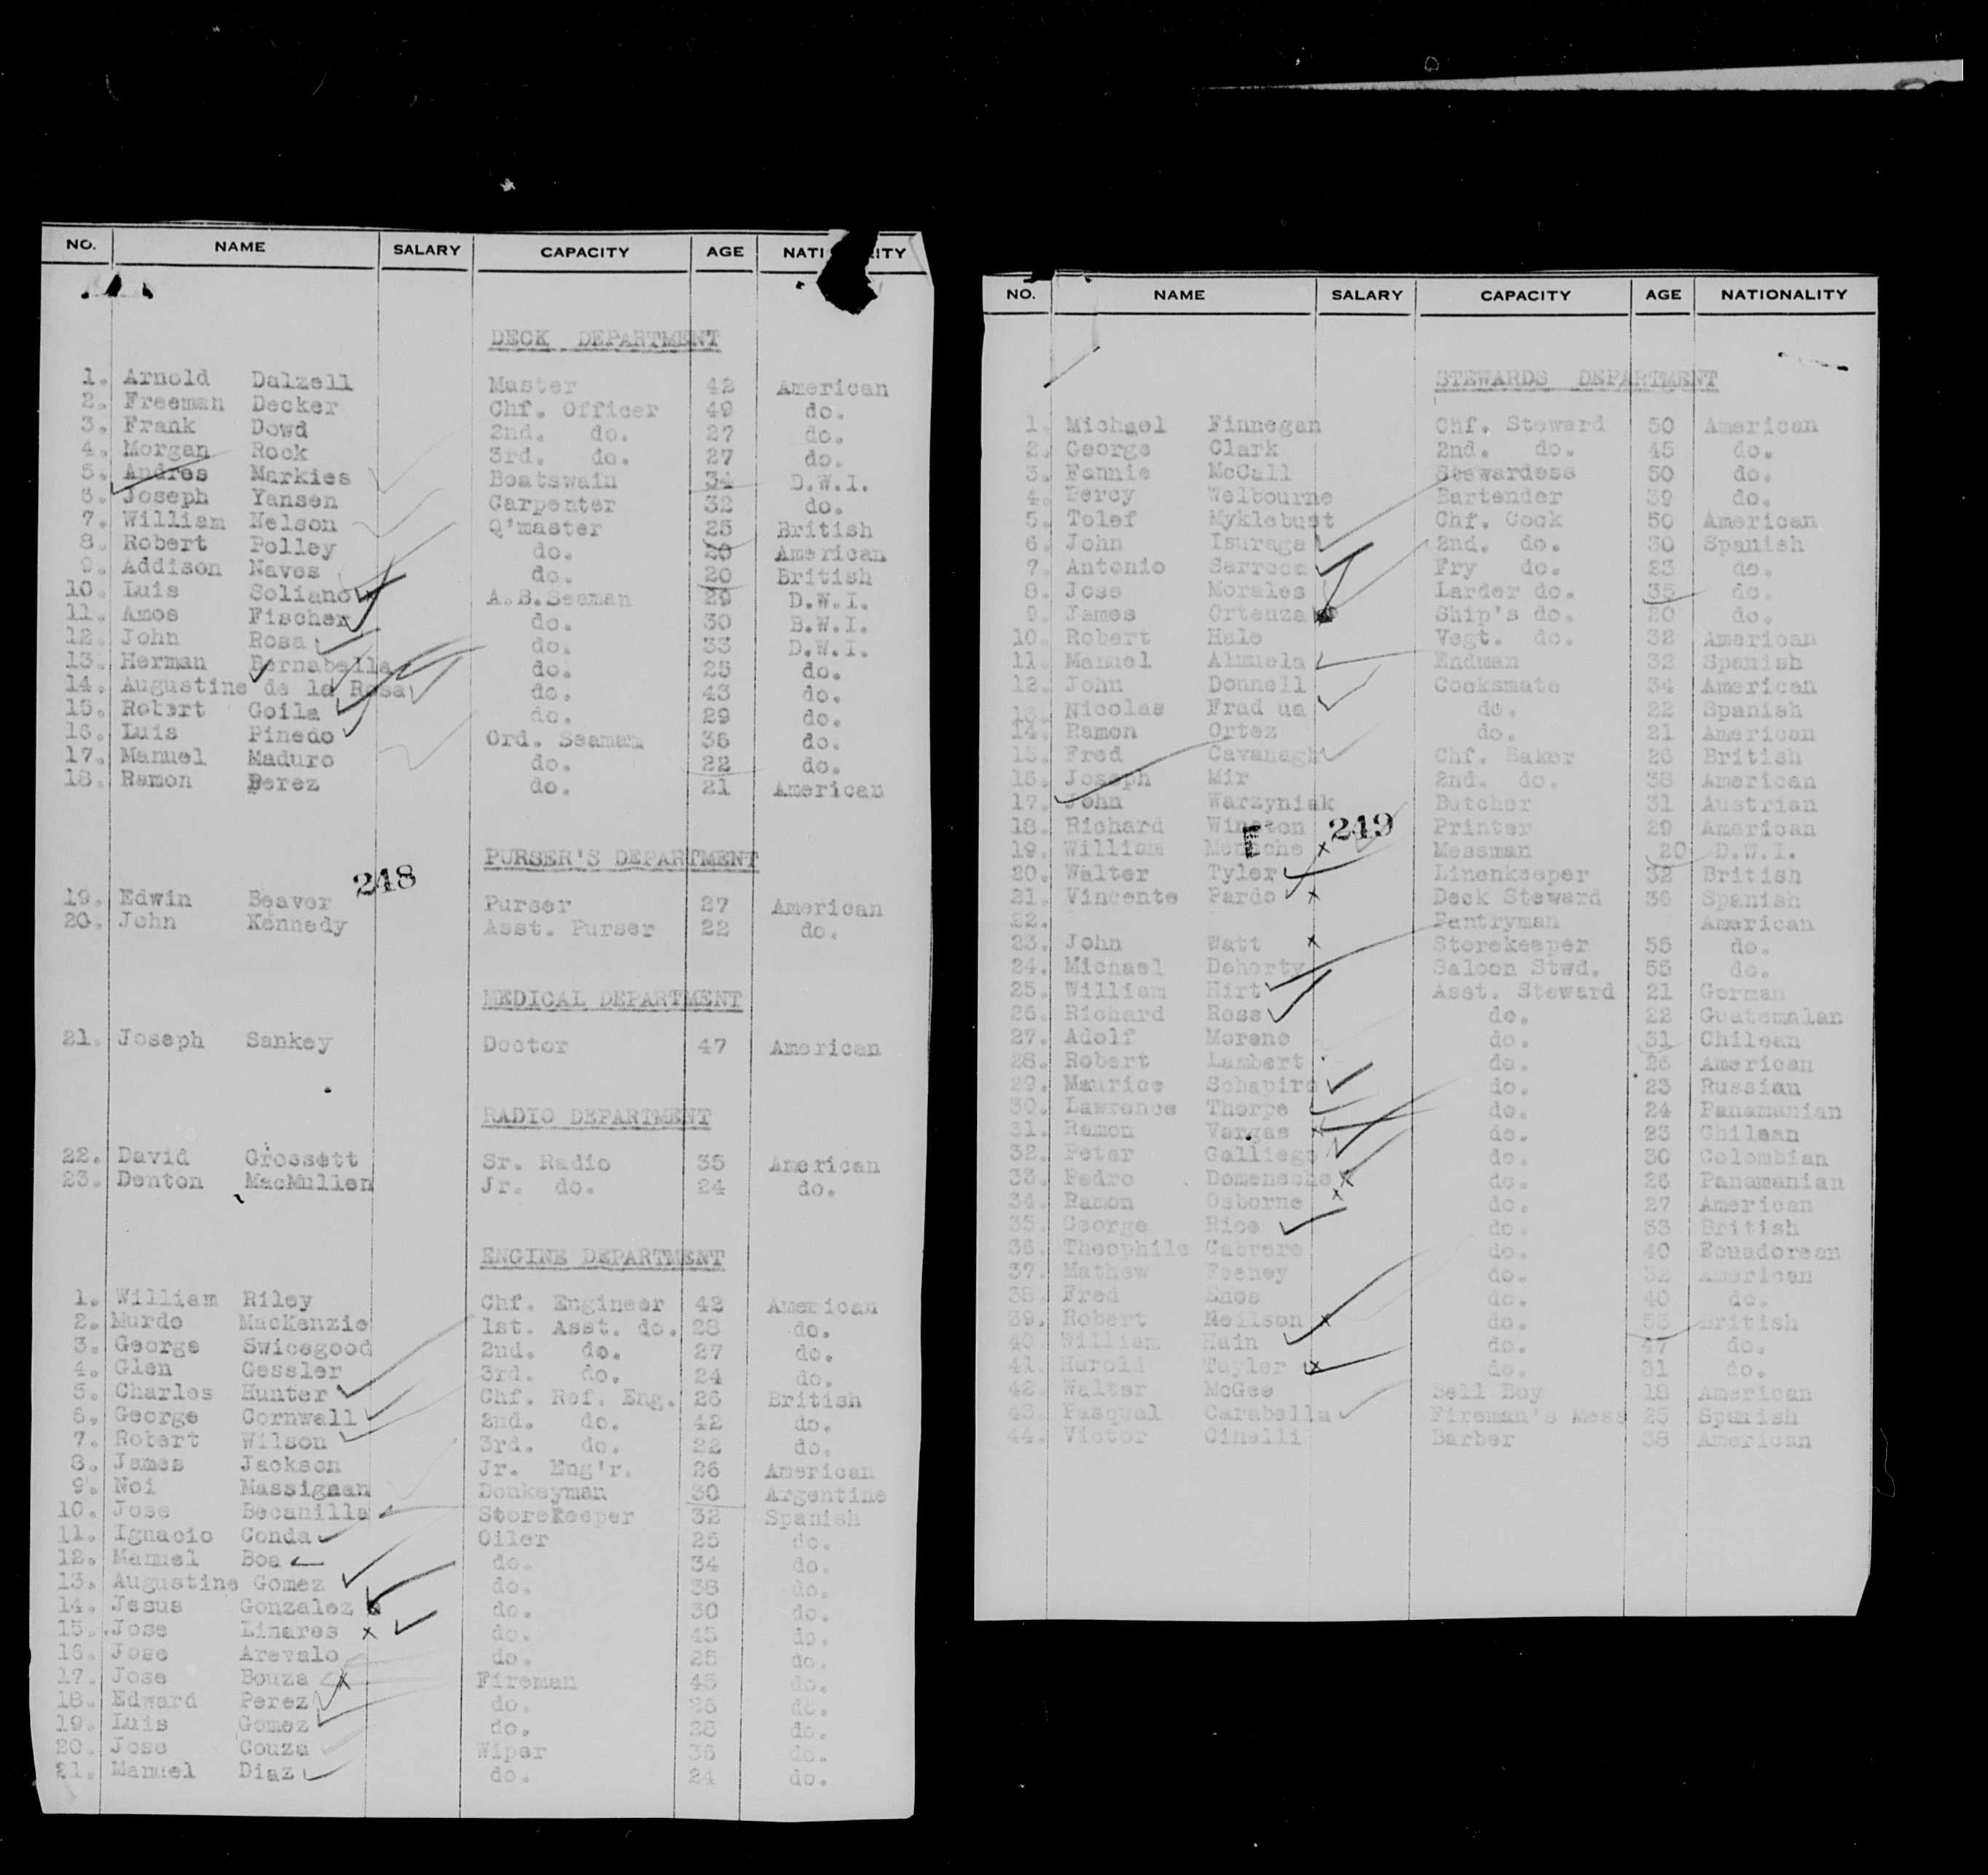 NO. NAME SALARY CAPACITY AGE NATI ITY
DECK DEPARTMENT
1. Arnold Dalzell Master 42 American
2. Freeman Decker Chf. Officer 49 do.
3. Frank Dowd 2nd. do. 27 do.
4. Morgan Rock 3rd. do. 27 do.
5. Andres Markies Boatswain 34 D.W.I.
6. Joseph Yansen Carpenter 32 do.
7. William Nelson Q'master 25 British
8. Robert Polley do. 20 American
9. Addison Naves do. 20 British
10. Luis Soliano A.B.Seaman 29 D.W.I.
11. Amos Fischer do. 30 B.W.I.
12. John Rosa do. 33 D.W.I.
13. Herman Bernabella do. 25 do.
14. Augustine de la Rosa do. 43 do.
15. Robert Goila do. 29 do.
16. Luis Pinedo Ord. Seaman 36 do.
17. Manuel Maduro do. 22 do.
18. Ramon Perez do. 21 American
PURSER'S DEPARTMENT
248
19. Edwin Beaver Purser 27 American
20. John Kennedy Asst. Purser 22 do.
MEDICAL DEPARTMENT
21. Joseph Sankey Doctor 47 American
RADIO DEPARTMENT
22. David Grossett Sr. Radio 35 American
23. Denton MacMullen Jr. do. 24 do.
ENGINE DEPARTMENT
1. William Riley Chf. Engineer 42 American
2. Murdo MacKenzie 1st. Asst. do. 28 do.
3. George Swicegood 2nd. do. 27 do.
4. Glen Gessler 3rd. do. 24 do.
5. Charles Hunter Chf. Ref. Eng. 26 British
6. George Cornwall 2nd. do. 42 do.
7. Robert Wilson 3rd. do. 22 do.
8. James Jackson Jr. Eng'r. 26 American
9. Noi Massignan Donkeyman 30 Argentine
10. Jose Becanilla Storekeeper 32 Spanish
11. Ignacio Conda Oiler 25 do.
12. Manuel Boa do. 34 do.
13. Augustine Gomez do. 38 do.
14. Jesus Gonzalez do. 30 do.
15. Jose Linares do. 45 do.
16. Jose Arevalo do. 25 do.
17. Jose Bouza Fireman 45 do.
18. Edward Perez do. 26 do.
19. Luis Gomez do. 28 do.
20. Jose Couza Wiper 36 do.
21. Manuel Diaz do. 24 do.
NO. NAME SALARY CAPACITY AGE NATIONALITY
STEWARDS DEPARTMENT
1. Michael Finnegan Chf. Steward 50 American
2. George Clark 2nd. do. 45 do.
3. Fannie McCall Stewardess 50 do.
4. Percy Welbourne Bartender 39 do.
5. Tolef Myklebust Chf. Cock 50 American
6. John Isuraga 2nd. do. 30 Spanish
7. Antonio Sarroca Fry do. 23 do.
8. Jose Morales Larder do. 35 do.
9. James Ortenza Ship's do. 20 do.
10. Robert Hale Vegt. do. 32 American
11. Manuel Almuela Endman 32 Spanish
12. John Donnell Cocksmate 34 American
13. Nicolas Frad ua do. 22 Spanish
14. Ramon Ortez do. 21 American
15. Fred Cavanagh Chf. Baker 26 British
16. Joseph Mir 2nd. do. 38 American
17. John Warzyniak Butcher 31 Austrian
18. Richard Winston 249 Printer 29 American
19. William Messman 20 D.W.I.
20. Walter Tyler Linenkeeper 32 British
21. Vincente Pardo Deck Steward 36 Spanish
22. Pantryman American
23. John Watt Storekeeper 55 do.
24. Michael Dohorty Saloon Stwd. 55 do.
25. William Hirt Asst. Steward 21 German
26. Richard Ross do. 22 Guatemalan
27. Adolf Moreno do. 31 Chilean
28. Robert Lambert do. 26 American
29. Maurice Schapiro do. 23 Russian
30. Lawrence Thorpe do. 24 Panamanian
31. Ramon Vargas do. 23 Chilean
32. Peter Galliego do. 30 Colombian
33. Pedro Domeneche do. 26 Panamanian
34. Ramon Osborne do. 27 American
35. George Rice do. 33 British
36. Theophilo Cabrero do. 40 Ecuadorean
37. Mathew Feeney do. 32 American
38. Fred Enos do. 40 do.
39. Robert Neilson do. British
40. William Hain do. 47 do.
41. Harold Tayler do. 31 do.
42. Walter McGee Bell Boy 18 American
43. Pasqual Carabella Fireman's Mess 25 Spanish
44. Victor Cinelli Barber 38 American